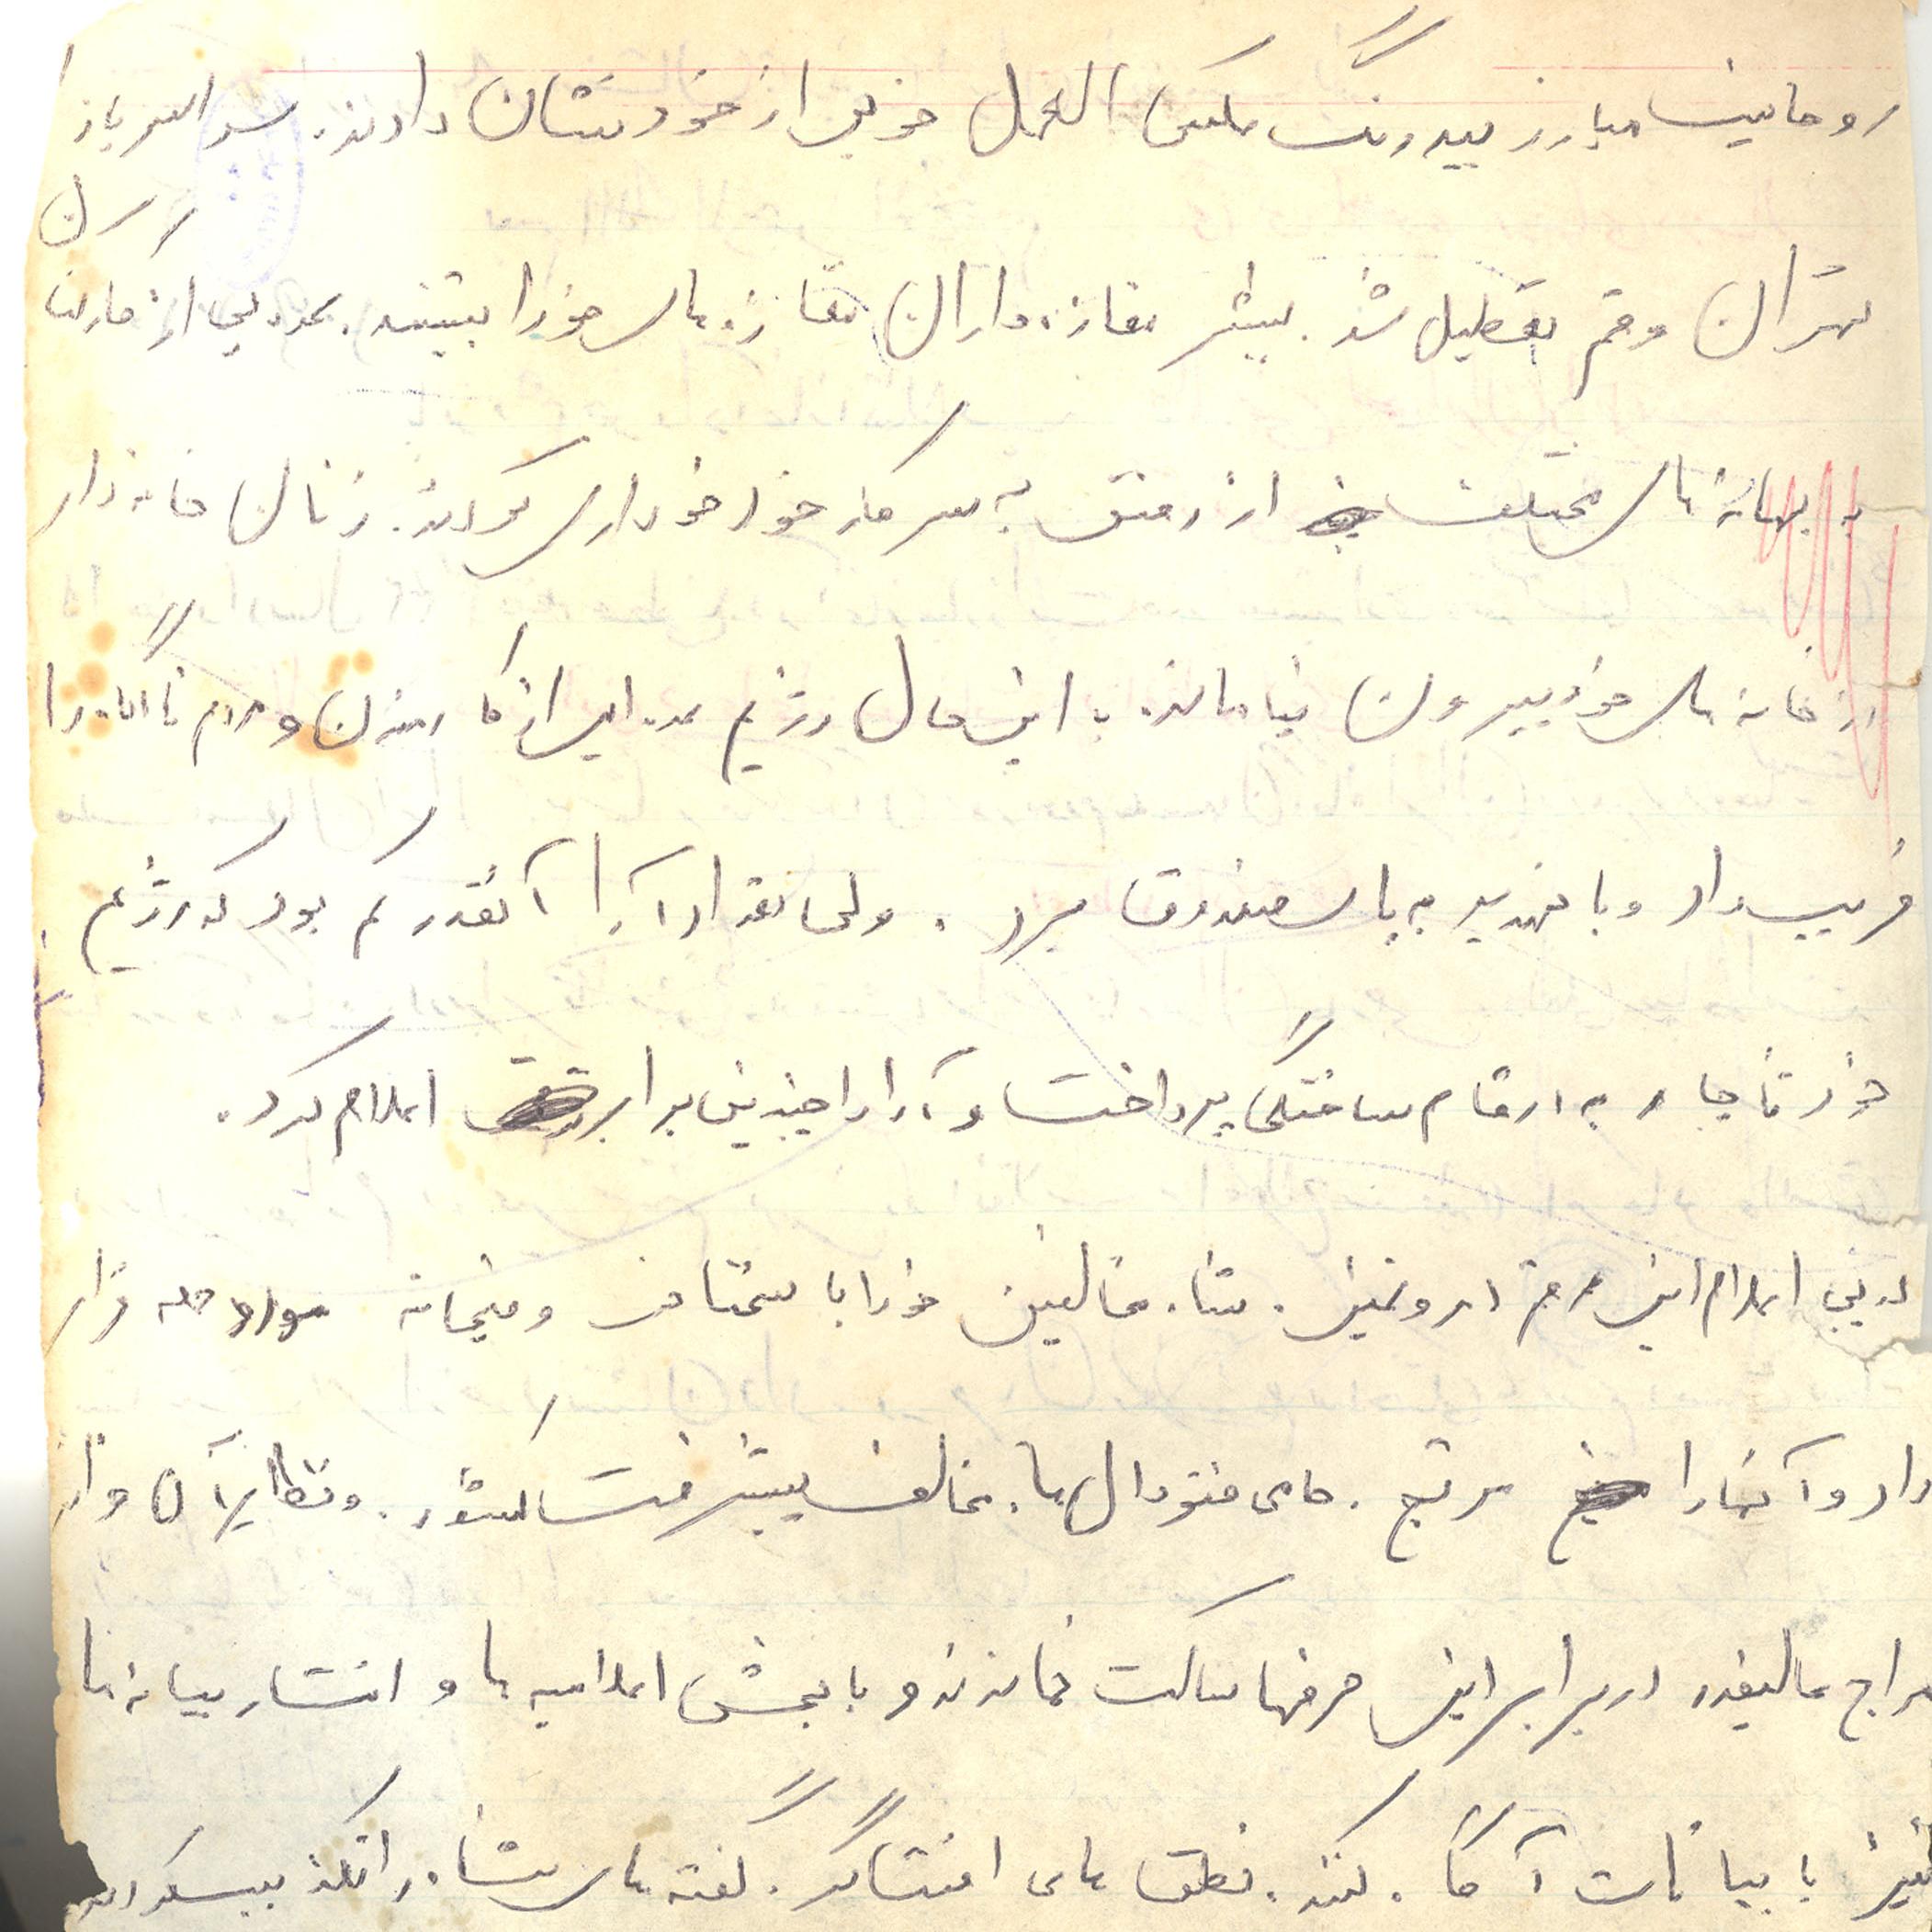 روحانیت مبارز بیدرنگ عکس العمل خوبی از خود نشان دادند. سراسر بازار
تهران و قم تعطیل شد. بیشتر مغازه داران مغازه های خود را بستند. عده یی از کارکنان
به بهانه های مختلف از رفتن به سر کار خود خودداری کردند. زنان خانه دار
از خانه های خود بیرون نیامدند. با این حال رژیم عده ای از کارمندان و مردم ناآگاه را
فریب داد و با تهدید به پای صندوق برد. ولی تعداد آرا آنقدر کم بود که رژیم
خود ناچار به ارقام ساختگی پرداخت و آرا را چندین برابر اعلام کرد.
در پی اعلام این رقم دروغین. شاه مخالفین خود را با سخنان وقیحانه مورد حمله قرار
داد و آنها را مرتجع. حامی فئودال ها. مخالف پیشرفت کشور. و نظایر آن خواند
مراجع عالیقدر در برابر این حرفها ساکت نماندند و با پخش اعلامیه ها و انتشار بیانه ها
نیز با بیانات آگاه کننده. نطق های افشاگر. گفته های شاه را تکذیب میکردند